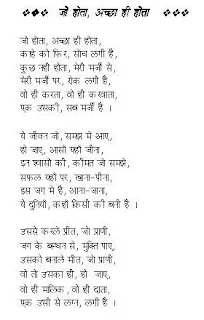 जो होता, अच्छा ही होता
जो होता, अच्छा ही होता,
काहे को फिर, सोच लगी है,
कुछ नहीं होता, मेरी मर्जी से,
मेरी मर्जी पर, रोक लगी है,
वो ही करता, वो ही करवाता,
एक उसकी, सब मर्जी है ।
ये जीवन जो, समझ में आए,
हो जाए, आसां यहाँ जीना,
इन श्वासों की, कीमत जो समझे,
सफल यहाँ पर, खाना-पीना,
इस जग में है, आना-जाना,
ये दुनियाँ, कहाँ किसी की बनी है ।
उससे करले प्रीत, जो प्राणी,
जग के बन्धन से, मुक्ति पाए,
उसको बनाले मीत, जो प्राणी,
वो तो उसका ही, हो जाए,
वो ही मालिक, वो ही दाता,
एक उसी से लग्न, लगी है ।